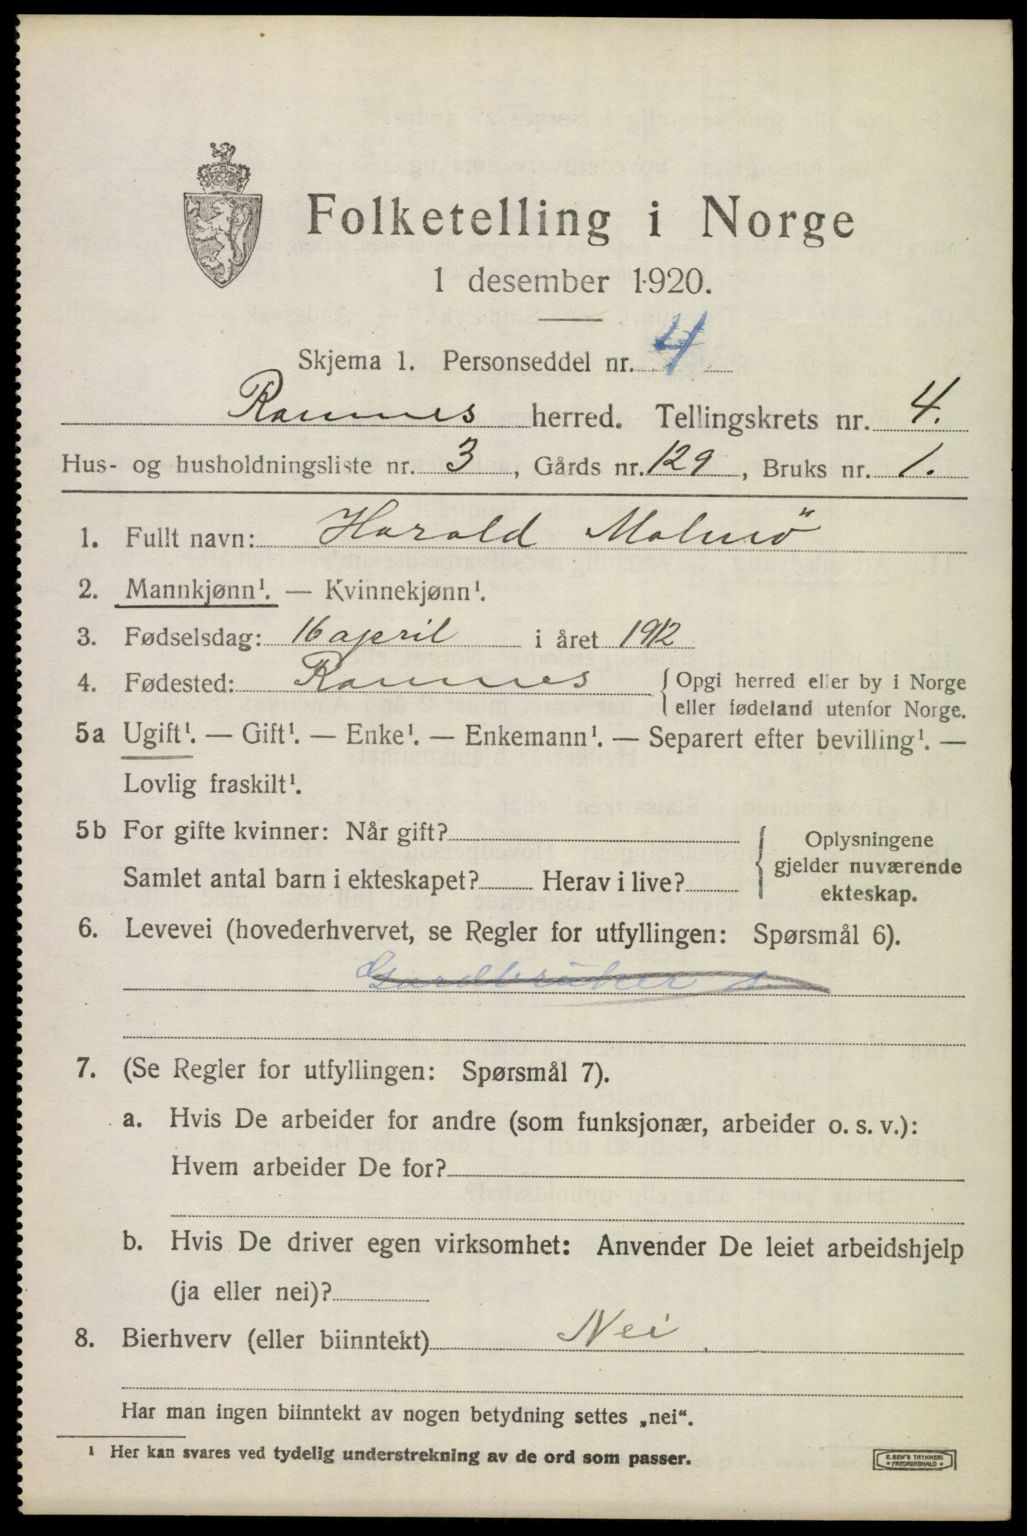 Folketelling i Norge
1 desember 1920.
Skjema 1. Personseddel nr. 4
Ramnes herred. Tellingskrets nr. 4.
Hus- og husholdningsliste nr. 3, Gårds nr. 129, Bruks nr. 1.
1. Fullt navn: Harald Malmö
2. Mannkjønn¹. — Kvinnekjønn¹.
3. Fødselsdag: 16 april i året 1912
4. Fødested: Ramnes { Opgi herred eller by i Norge
eller fødeland utenfor Norge.
5a Ugift¹. — Gift¹. — Enke¹. — Enkemann¹. — Separert efter bevilling¹. —
Lovlig fraskilt¹.
5b For gifte kvinner: Når gift?
Samlet antal barn i ekteskapet? Herav i live?
{ Oplysningene
gjelder nuværende
ekteskap.
6. Levevei (hovederhvervet, se Regler for utfyllingen: Spørsmål 6).
Gardbruker s.
7. (Se Regler for utfyllingen: Spørsmål 7).
a. Hvis De arbeider for andre (som funksjonær, arbeider o. s. v.):
Hvem arbeider De for?
b. Hvis De driver egen virksomhet: Anvender De leiet arbeidshjelp
(ja eller nei)?
8. Bierhverv (eller biinntekt) Nei
Har man ingen biinntekt av nogen betydning settes „nei“.
¹ Her kan svares ved tydelig understrekning av de ord som passer.
E. SEM'S TRYKKERI
FREDRIKSHALD